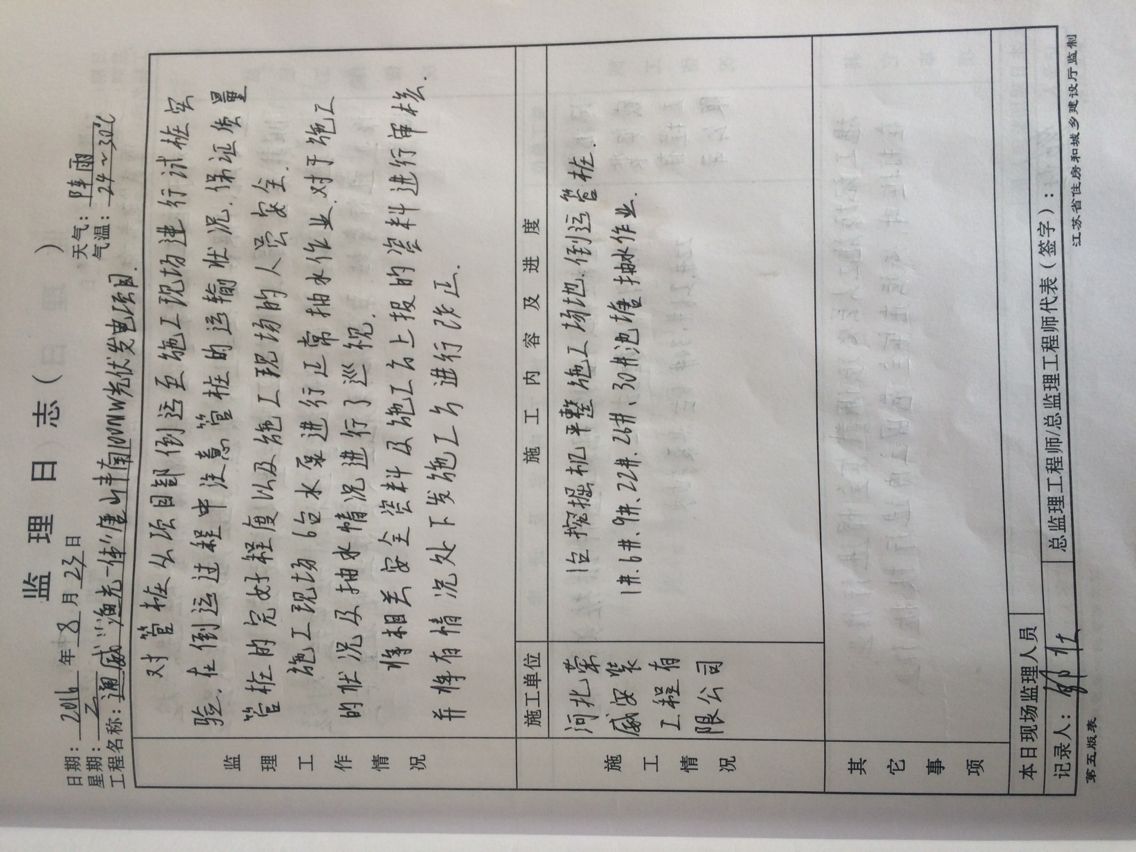 监 理 日 志（ ）
日期：2016 年 8 月 23 日
天气：阵雨
星期：二
气温：24~30℃
工程名称：通威"渔光一体"唐山丰南100MW光伏发电项目.
监理工作情况
对管桩从项目部倒运至施工现场进行试桩实
验.在倒运过程中注意管桩的运输状况.保证质量
管桩的完好程度以及施工现场的人员安全.
施工现场6台水泵进行正常抽水作业.对于施工
的状况及抽水情况进行了巡视.
将相关安全资料及施工台上报的资料进行审核.
并将有情况处下发施工方进行改正.
施工情况
施工单位
施 工 内 容 及 进 度
河北荣
威安装
工程有
限公司
1台挖掘机平整施工场地.倒运管桩.
1#.6#.9#.22#.26#.30#池塘抽水作业.
其它事项
本日现场监理人员
记录人：
总监理工程师/总监理工程师代表（签字）：
第五版表
江苏省住房和城乡建设厅监制